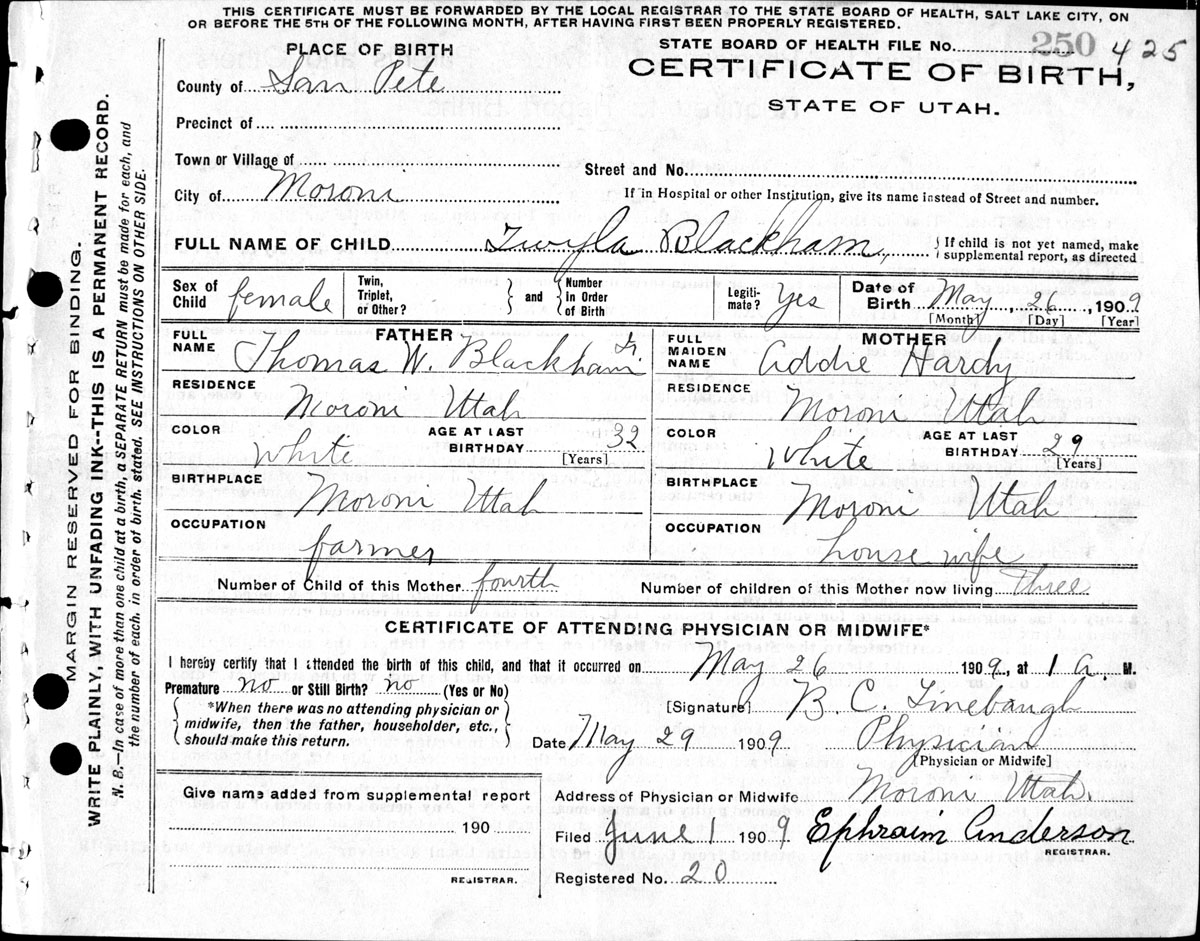 THIS CERTIFICATE MUST BE FORWARDED BY THE LOCAL REGISTRAR TO THE STATE BOARD OF HEALTH, SALT LAKE CITY, ON
OR BEFORE THE 5TH OF THE FOLLOWING MONTH, AFTER HAVING FIRST BEEN PROPERLY REGISTERED.
PLACE OF BIRTH
County of San Pete
Precinct of
Town or Village of
City of Moroni
STATE BOARD OF HEALTH FILE No. 250 425
CERTIFICATE OF BIRTH,
STATE OF UTAH.
Street and No.
If in Hospital or other Institution, give its name instead of Street and number.
FULL NAME OF CHILD Twyla Blackham, If child is not yet named, make
supplemental report, as directed
Sex of Child female
Twin, Triplet, or Other?
and
Number In Order of Birth
Legiti-mate? Yes
Date of Birth May, 26, 1909
[Month] [Day] [Year]
FATHER
FULL NAME Thomas W. Blackham Jr.
RESIDENCE
Moroni Utah
COLOR White AGE AT LAST BIRTHDAY 32
[Years]
BIRTHPLACE Moroni Utah
OCCUPATION farmer
MOTHER
FULL MAIDEN NAME Addie Hardy
RESIDENCE
Moroni Utah
COLOR White AGE AT LAST BIRTHDAY 29
[Years]
BIRTHPLACE Moroni Utah
OCCUPATION house wife
Number of Child of this Mother fourth Number of children of this Mother now living three
CERTIFICATE OF ATTENDING PHYSICIAN OR MIDWIFE*
I hereby certify that I attended the birth of this child, and that it occurred on May 26 1909, at 1 a. M.
Premature no or Still Birth? no (Yes or No)
*When there was no attending physician or
midwife, then the father, householder, etc.,
should make this return.
[Signature] B. C. Linebaugh
Date May 29 1909 Physician
[Physician or Midwife]
Address of Physician or Midwife Moroni Utah.
Filed June 1 1909 Ephraim Anderson
REGISTRAR.
Registered No. 20
Give name added from supplemental report
190
REGISTRAR.
MARGIN RESERVED FOR BINDING.
WRITE PLAINLY, WITH UNFADING INK--THIS IS A PERMANENT RECORD.
N. B.—In case of more then one child at a birth, a SEPARATE RETURN must be made for each, and
the number of each, in order of birth, stated. SEE INSTRUCTIONS ON OTHER SIDE.